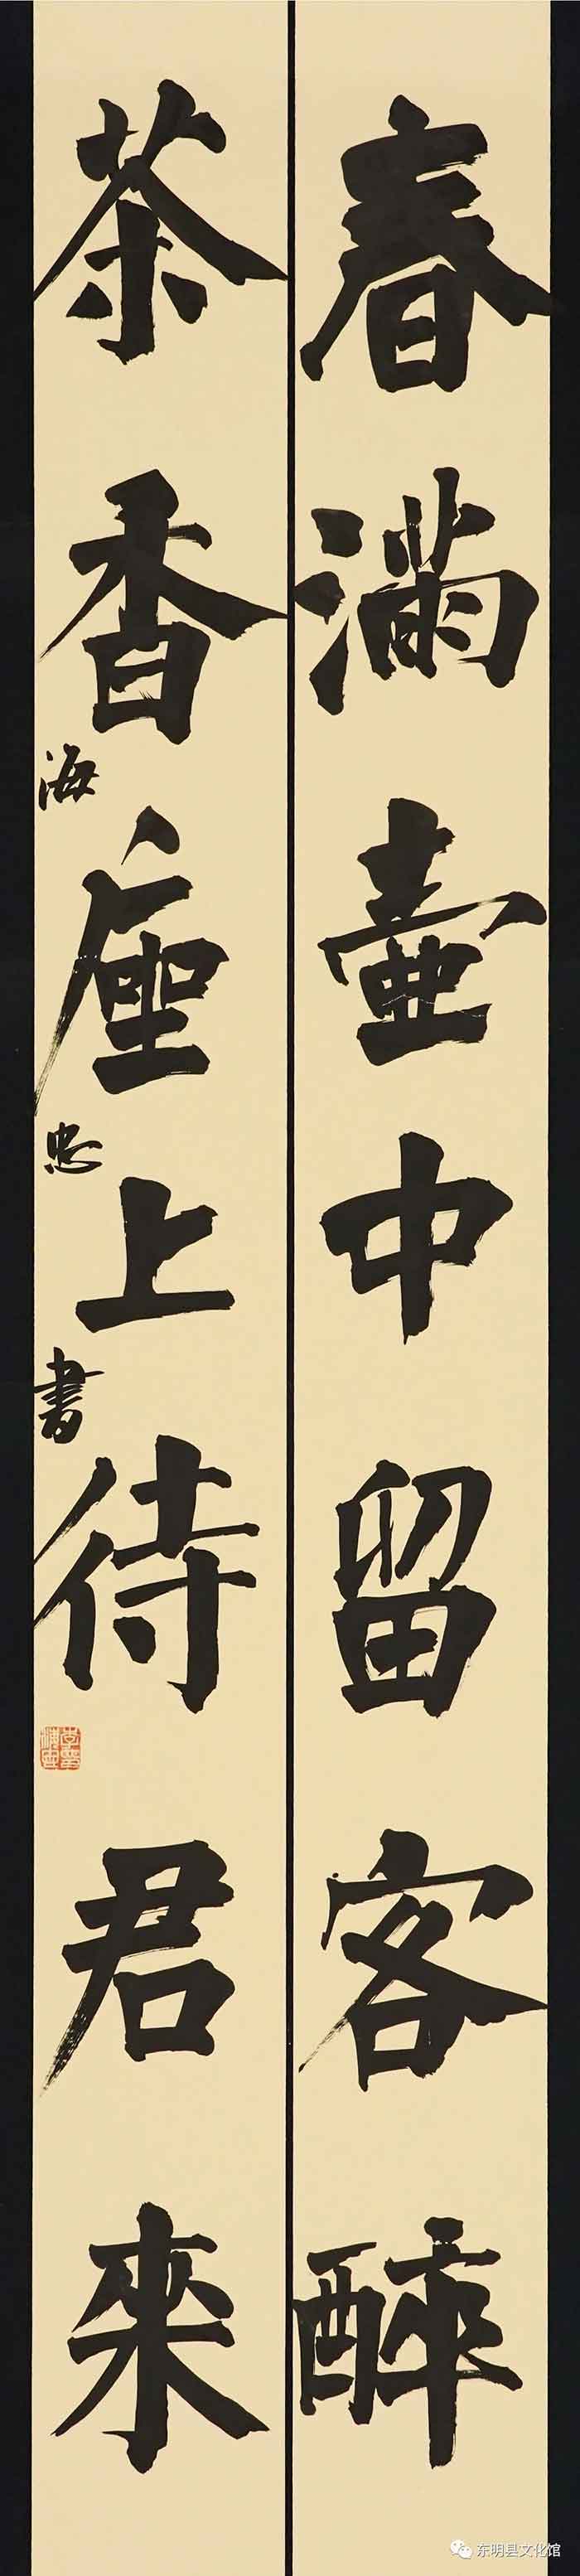 春滿壺中留客醉
茶香座上待君來
海忠書
东明县文化馆